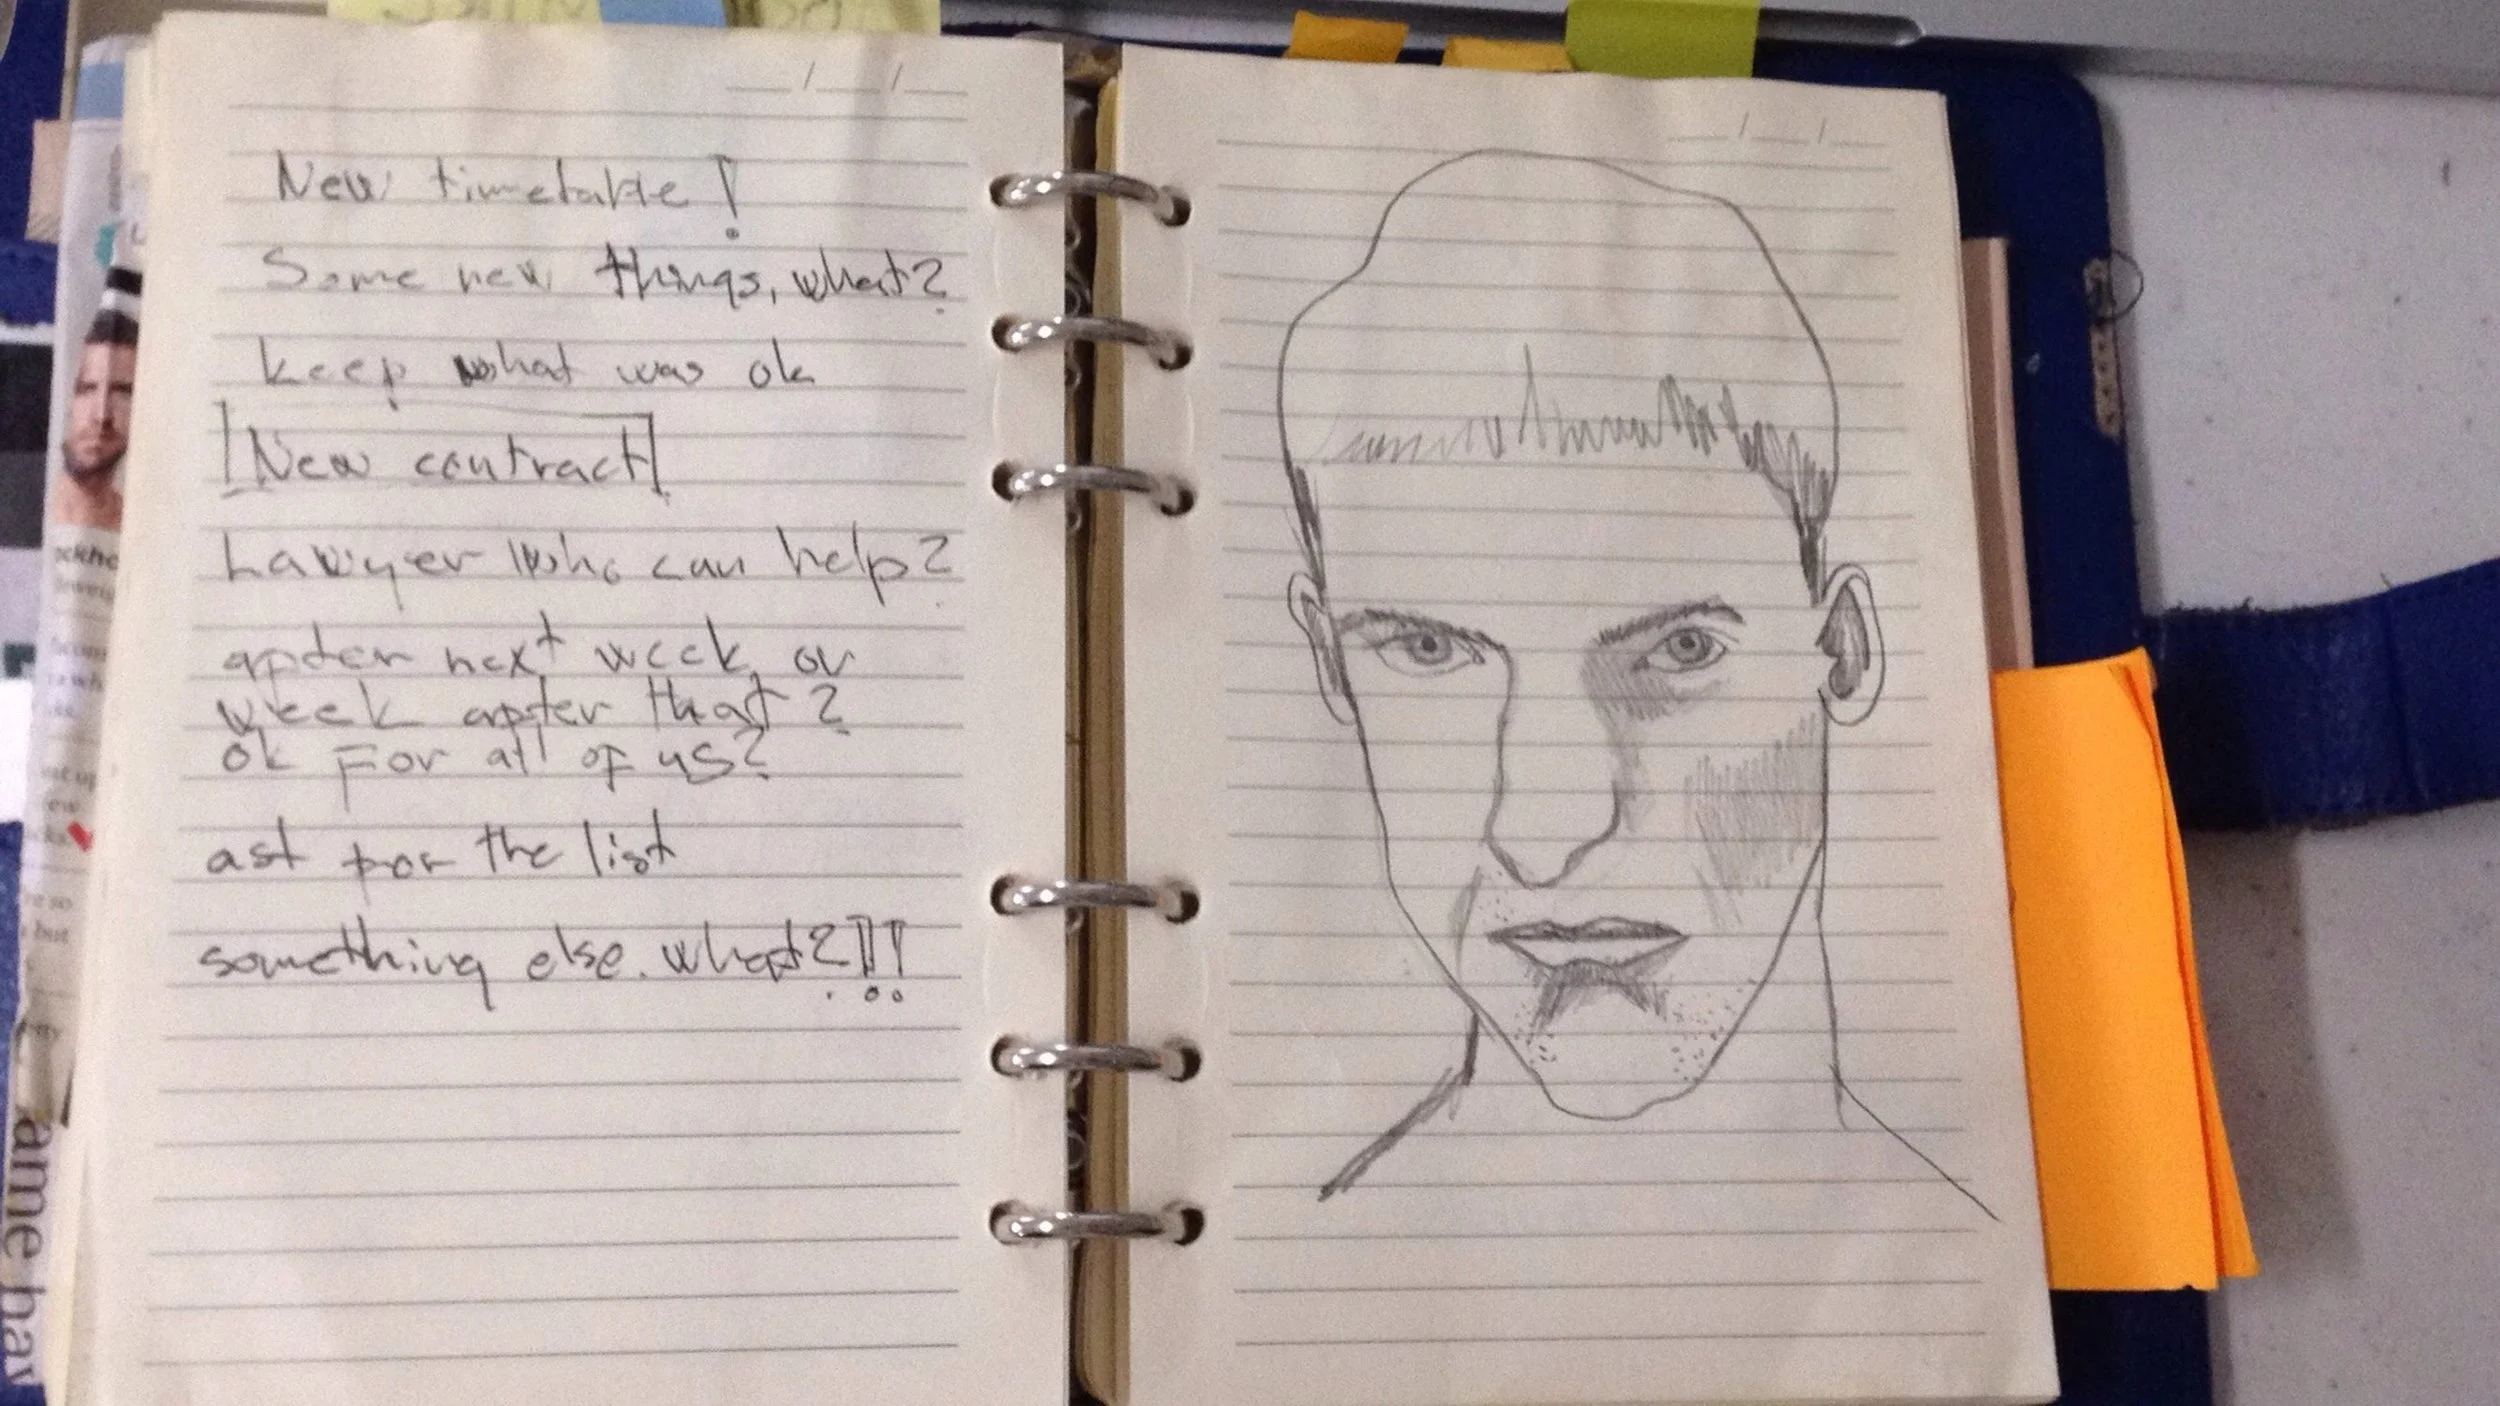 New timetable!
Some new things, what?
keep what was ok
New contract
Lawyer who can help?
apter next week or
week apter that?
ok For all of us?
ast for the list
something else. what?!!
ame hav